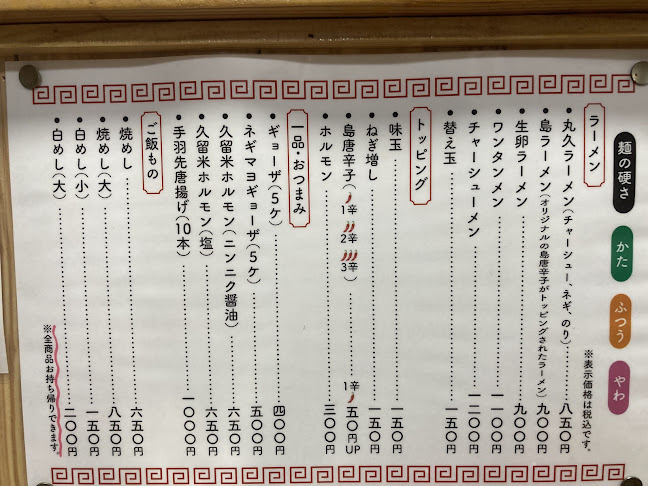 麺の硬さ
かた
ふつう
やわ
※表示価格は税込です。
ラーメン
・丸久ラーメン(チャーシュー、ネギ、のり)……八五〇円
・島ラーメン(オリジナルの島唐辛子がトッピングされたラーメン)九〇〇円
・生卵ラーメン……九〇〇円
・ワンタンメン……一一〇〇円
・チャーシューメン……一二〇〇円
・替え玉……一五〇円
トッピング
・味玉……一五〇円
・ねぎ増し……一五〇円
・島唐辛子(1辛 2辛 3辛)……1辛 五〇円UP
・ホルモン……三〇〇円
一品・おつまみ
・ギョーザ(5ケ)……四〇〇円
・ネギマヨギョーザ(5ケ)……五〇〇円
・久留米ホルモン(ニンニク醬油)……六五〇円
・久留米ホルモン(塩)……六五〇円
・手羽先唐揚げ(10本)……一〇〇〇円
ご飯もの
・焼めし……六五〇円
・焼めし(大)……八五〇円
・白めし(小)……一五〇円
・白めし(大)……二〇〇円
※全商品お持ち帰りできます。